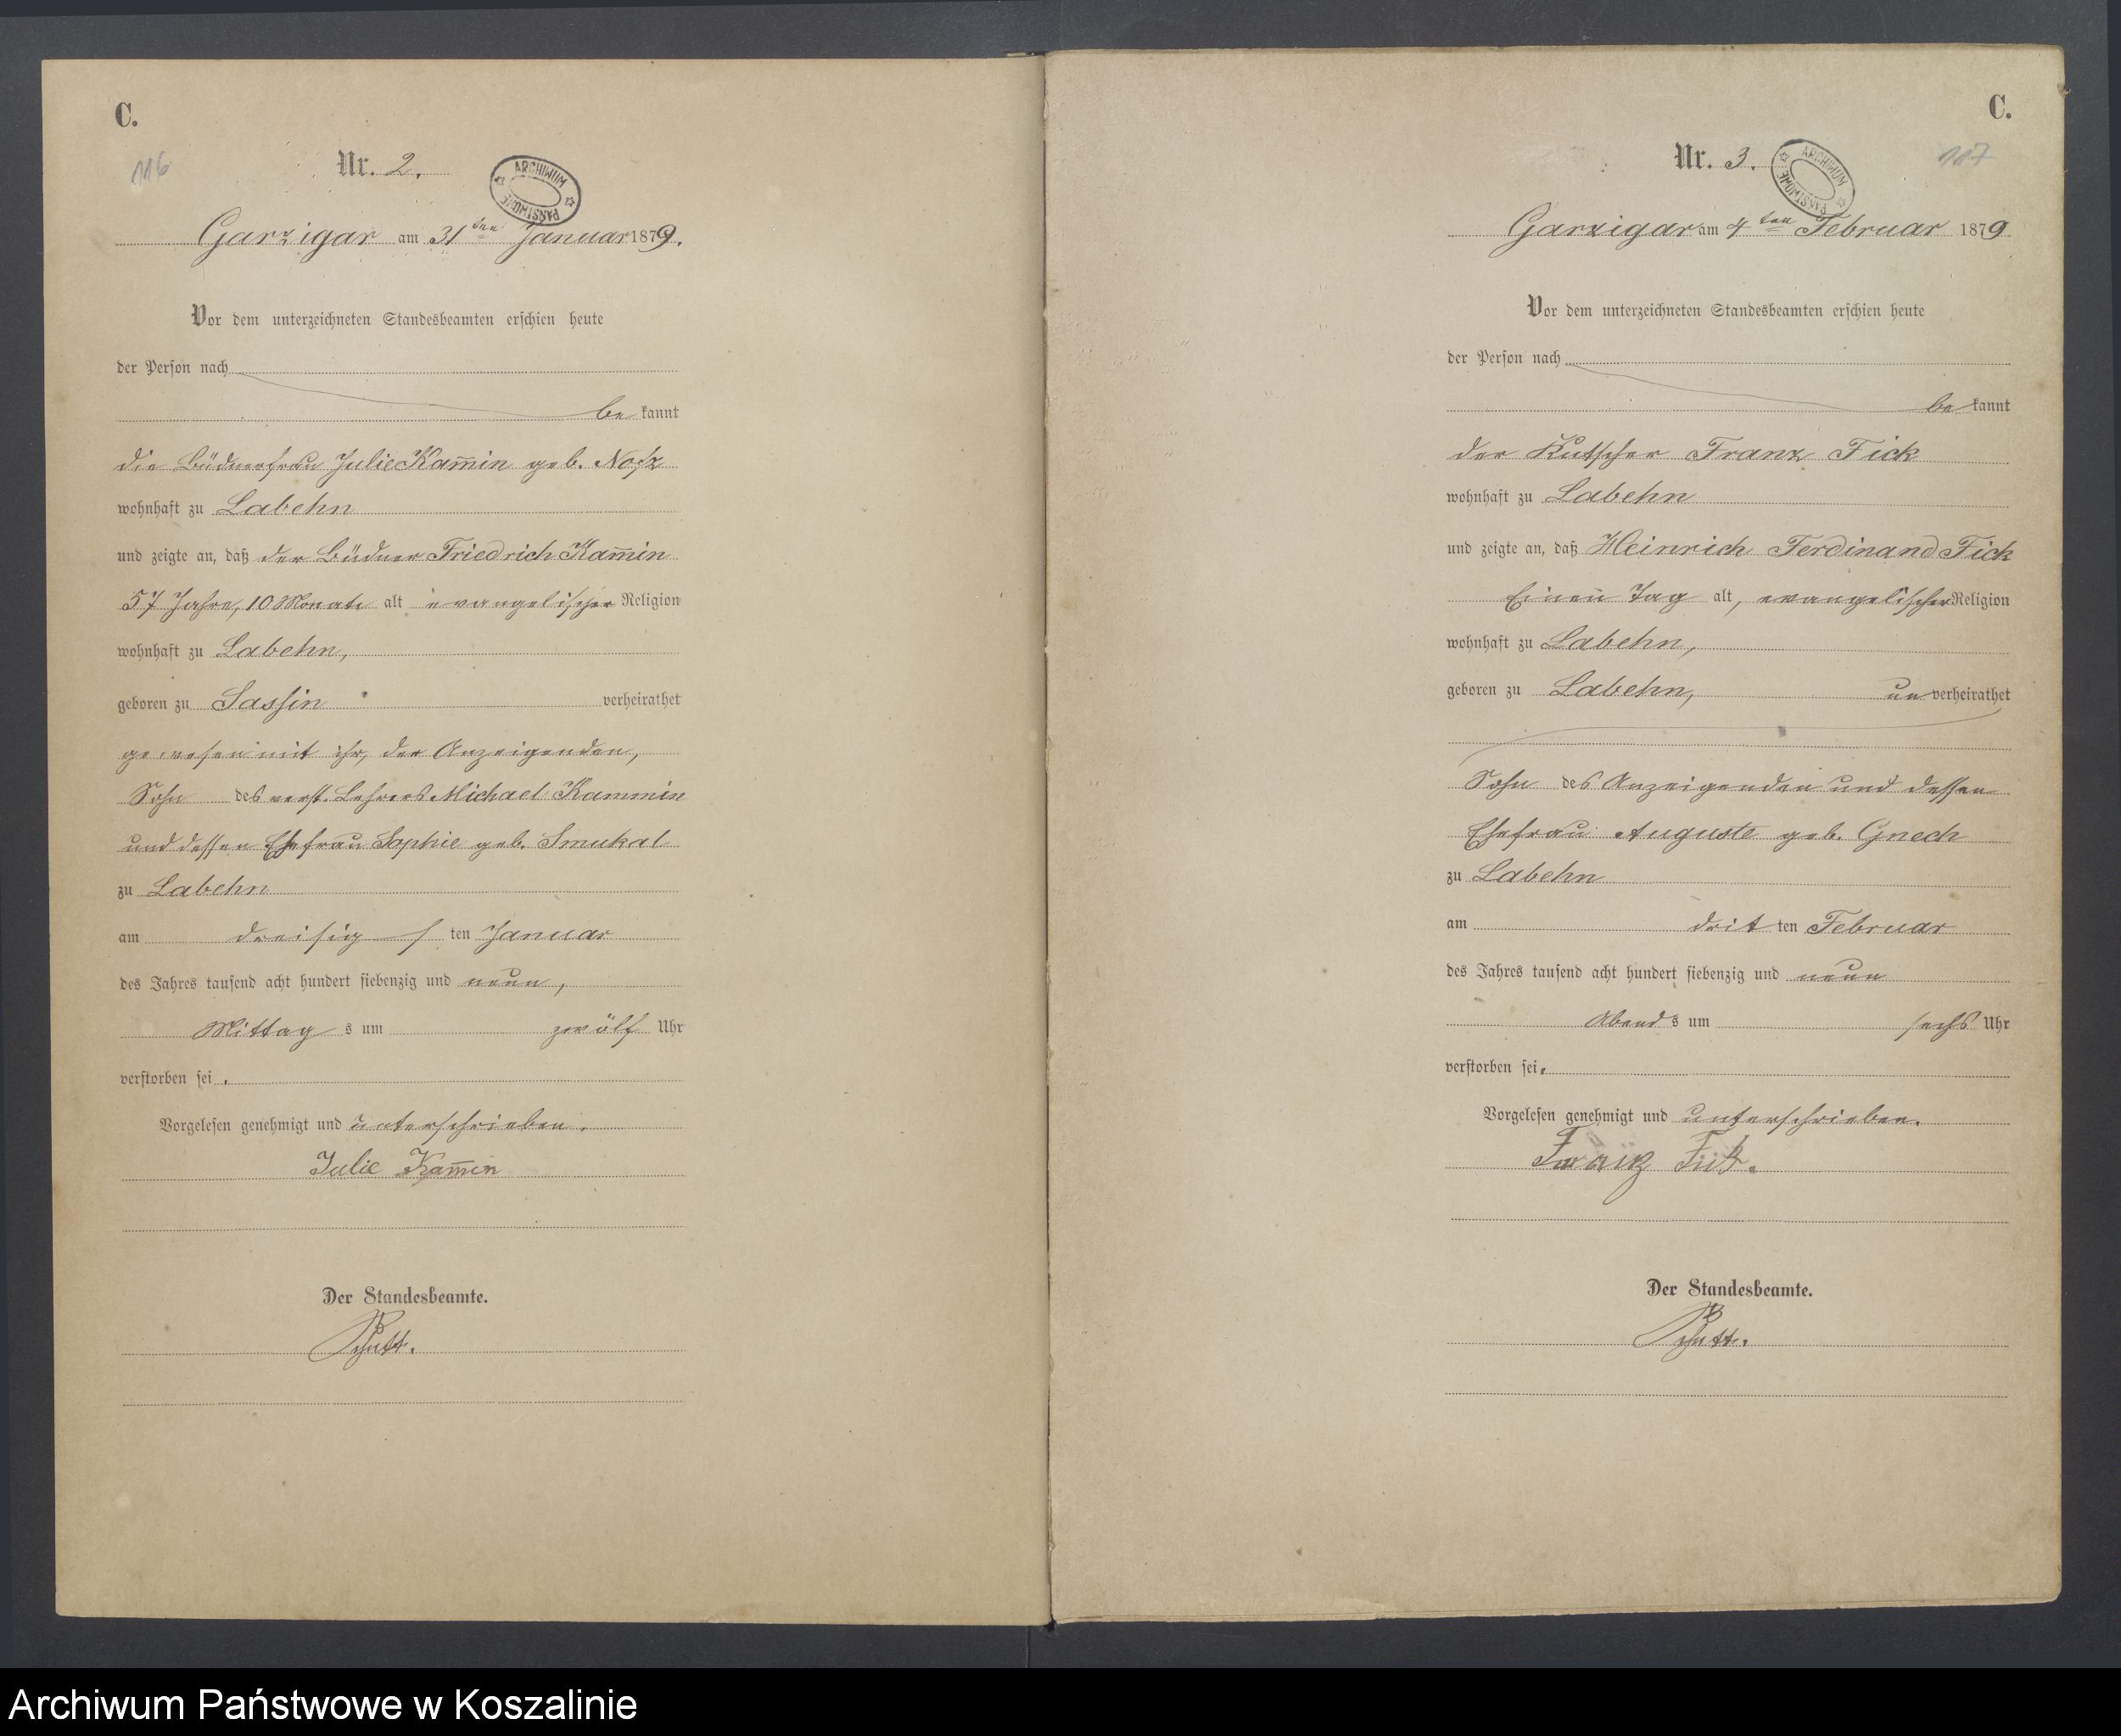 C.
116
Nr. 2.
ARCHIWUM PAŃSTWOWE
Garzigar am 31ten Januar 1879.
Vor dem unterzeichneten Standesbeamten erschien heute
der Person nach
be kannt
die Büdnerfrau Julie Kam̄in geb. Nosz
wohnhaft zu Labehn
und zeigte an, daß der Büdner Friedrich Kam̄in
57 Jahre, 10 Monate alt evangelischer Religion
wohnhaft zu Labehn,
geboren zu Sassin verheirathet
gewesen mit ihr, der Anzeigenden,
Sohn des verst. Lehrers Michael Kammin
und dessen Ehefrau Sophie geb. Smukal
zu Labehn
am dreisigs ten Januar
des Jahres tausend acht hundert siebenzig und neun,
Mittag s um zwölf Uhr
verstorben sei.
Vorgelesen genehmigt und unterschrieben.
Julie Kam̄in
Der Standesbeamte.
C.
117
Nr. 3.
ARCHIWUM PAŃSTWOWE
Garzigar am 4ten Februar 1879
Vor dem unterzeichneten Standesbeamten erschien heute
der Person nach
be kannt
der Kutscher Franz Fick
wohnhaft zu Labehn
und zeigte an, daß Heinrich Ferdinand Fick
Einen Tag alt, evangelischer Religion
wohnhaft zu Labehn,
geboren zu Labehn, un verheirathet
Sohn des Anzeigenden und dessen
Ehefrau Auguste geb. Gnech
zu Labehn
am drit ten Februar
des Jahres tausend acht hundert siebenzig und neun
Abend s um sechs Uhr
verstorben sei.
Vorgelesen genehmigt und unterschrieben.
Franz Fick.
Der Standesbeamte.
Archiwum Państwowe w Koszalinie